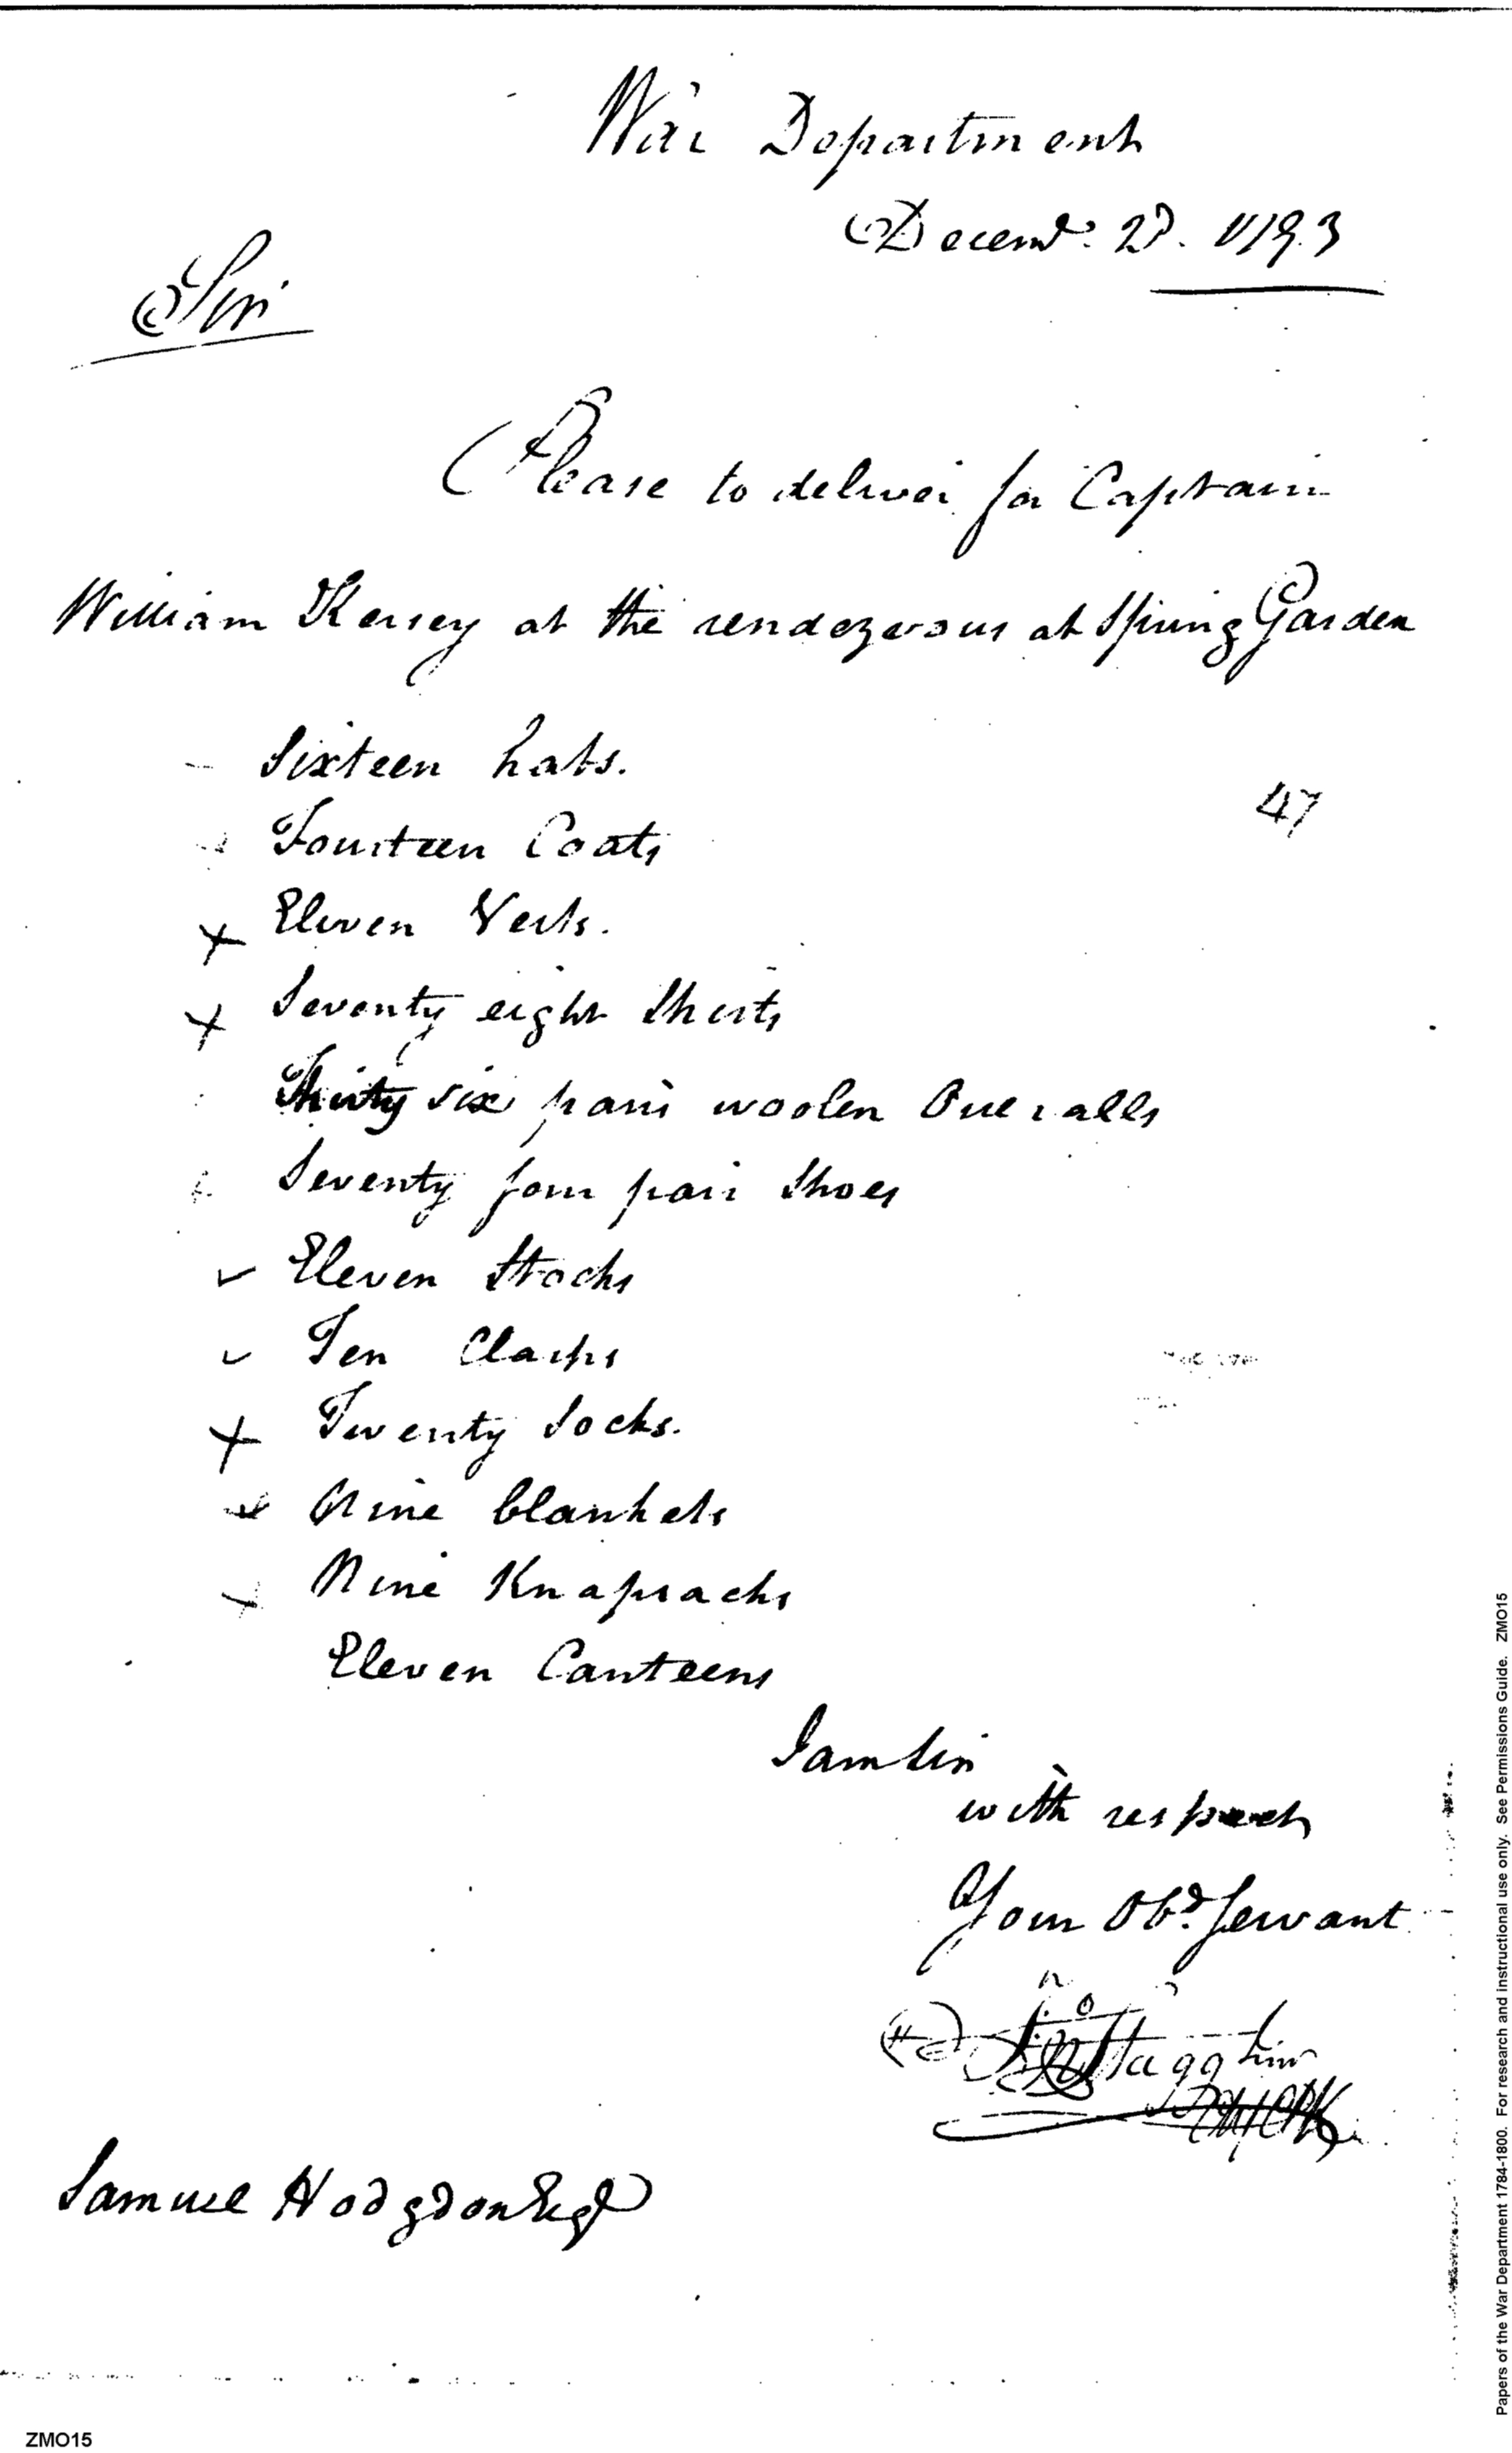 War Department
Decemr. 2d. 1793
Sir
Please to deliver for Captain
William Kersey at the rendezvous at Spring Garden
Sixteen hats.
47
Fourteen Coats
Eleven Vests.
Seventy eight Shirts
Thirty six pair woolen Overalls
Seventy four pair Shoes
Eleven Stocks
Ten Clasps
Twenty Socks.
Nine blankets
Nine Knapsacks
Eleven Canteens
I am Sir
with respect
Your Obd. Servant
Jno Stagg Junr
Samuel Hodgdon Esqr
Papers of the War Department 1784-1800. For research and instructional use only. See Permissions Guide. ZMO15
ZMO15